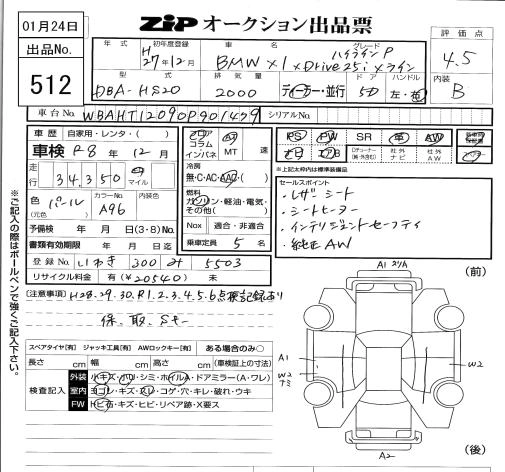 01月24日
ZIP オークション出品票
出品No.
512
評価点
4.5
内装
B
年式
初年度登録
車名
グレード
H27年12月
BMW X1 xDrive25i xライン
ハイラインP
型式
排気量
ドア
ハンドル
DBA-HS20
2000
ディーラー・並行
5D
左・右
車台No. WBAHT12090P901479
シリアルNo.
車歴 自家用・レンタ・( )
車検 R8年12月
走行 34,350 キロ マイル
色(元色) パール
カラーNo. A96
内装色
予備検 年 月 日(3・8)No.
書類有効期限 年 月 日迄
登録No. いわき 300 み 5503
リサイクル料金 有(¥20540) 未
シフト
コラム
インパネ
MT
速
冷房
無・C・AC・AAC・( )
燃料
ガソリン・軽油・電気・その他( )
Nox 適合・非適合
乗車定員 5名
PS PW SR 革 AW
エアB
Dチューナー(純・外含む)
社外ナビ
社外AW
※上記太枠内は標準装備品
セールスポイント
・レザーシート
・シートヒーター
・インテリジェントセーフティ
・純正AW
[注意事項] H28.29.30.R1.2.3.4.5.6点検記録あり
保、取、Sキー
スペアタイヤ[有] ジャッキ工具[有] AWロックキー[有] ある場合のみ〇
長さ cm 幅 cm 高さ cm (車検証上の寸法)
検査記入
外装 小キズ・小凹・シミ・ホイルA・ドアミラー(A・ワレ)
室内 ヨゴレ・キズ・スレ・コゲ・穴・キレ・破れ・ウキ
FW トビ石・キズ・ヒビ・リペア跡・X要ス
※ご記入の際はボールペンで強くご記入下さい。
(前)
A1
A1
W2
W2
A2
(後)